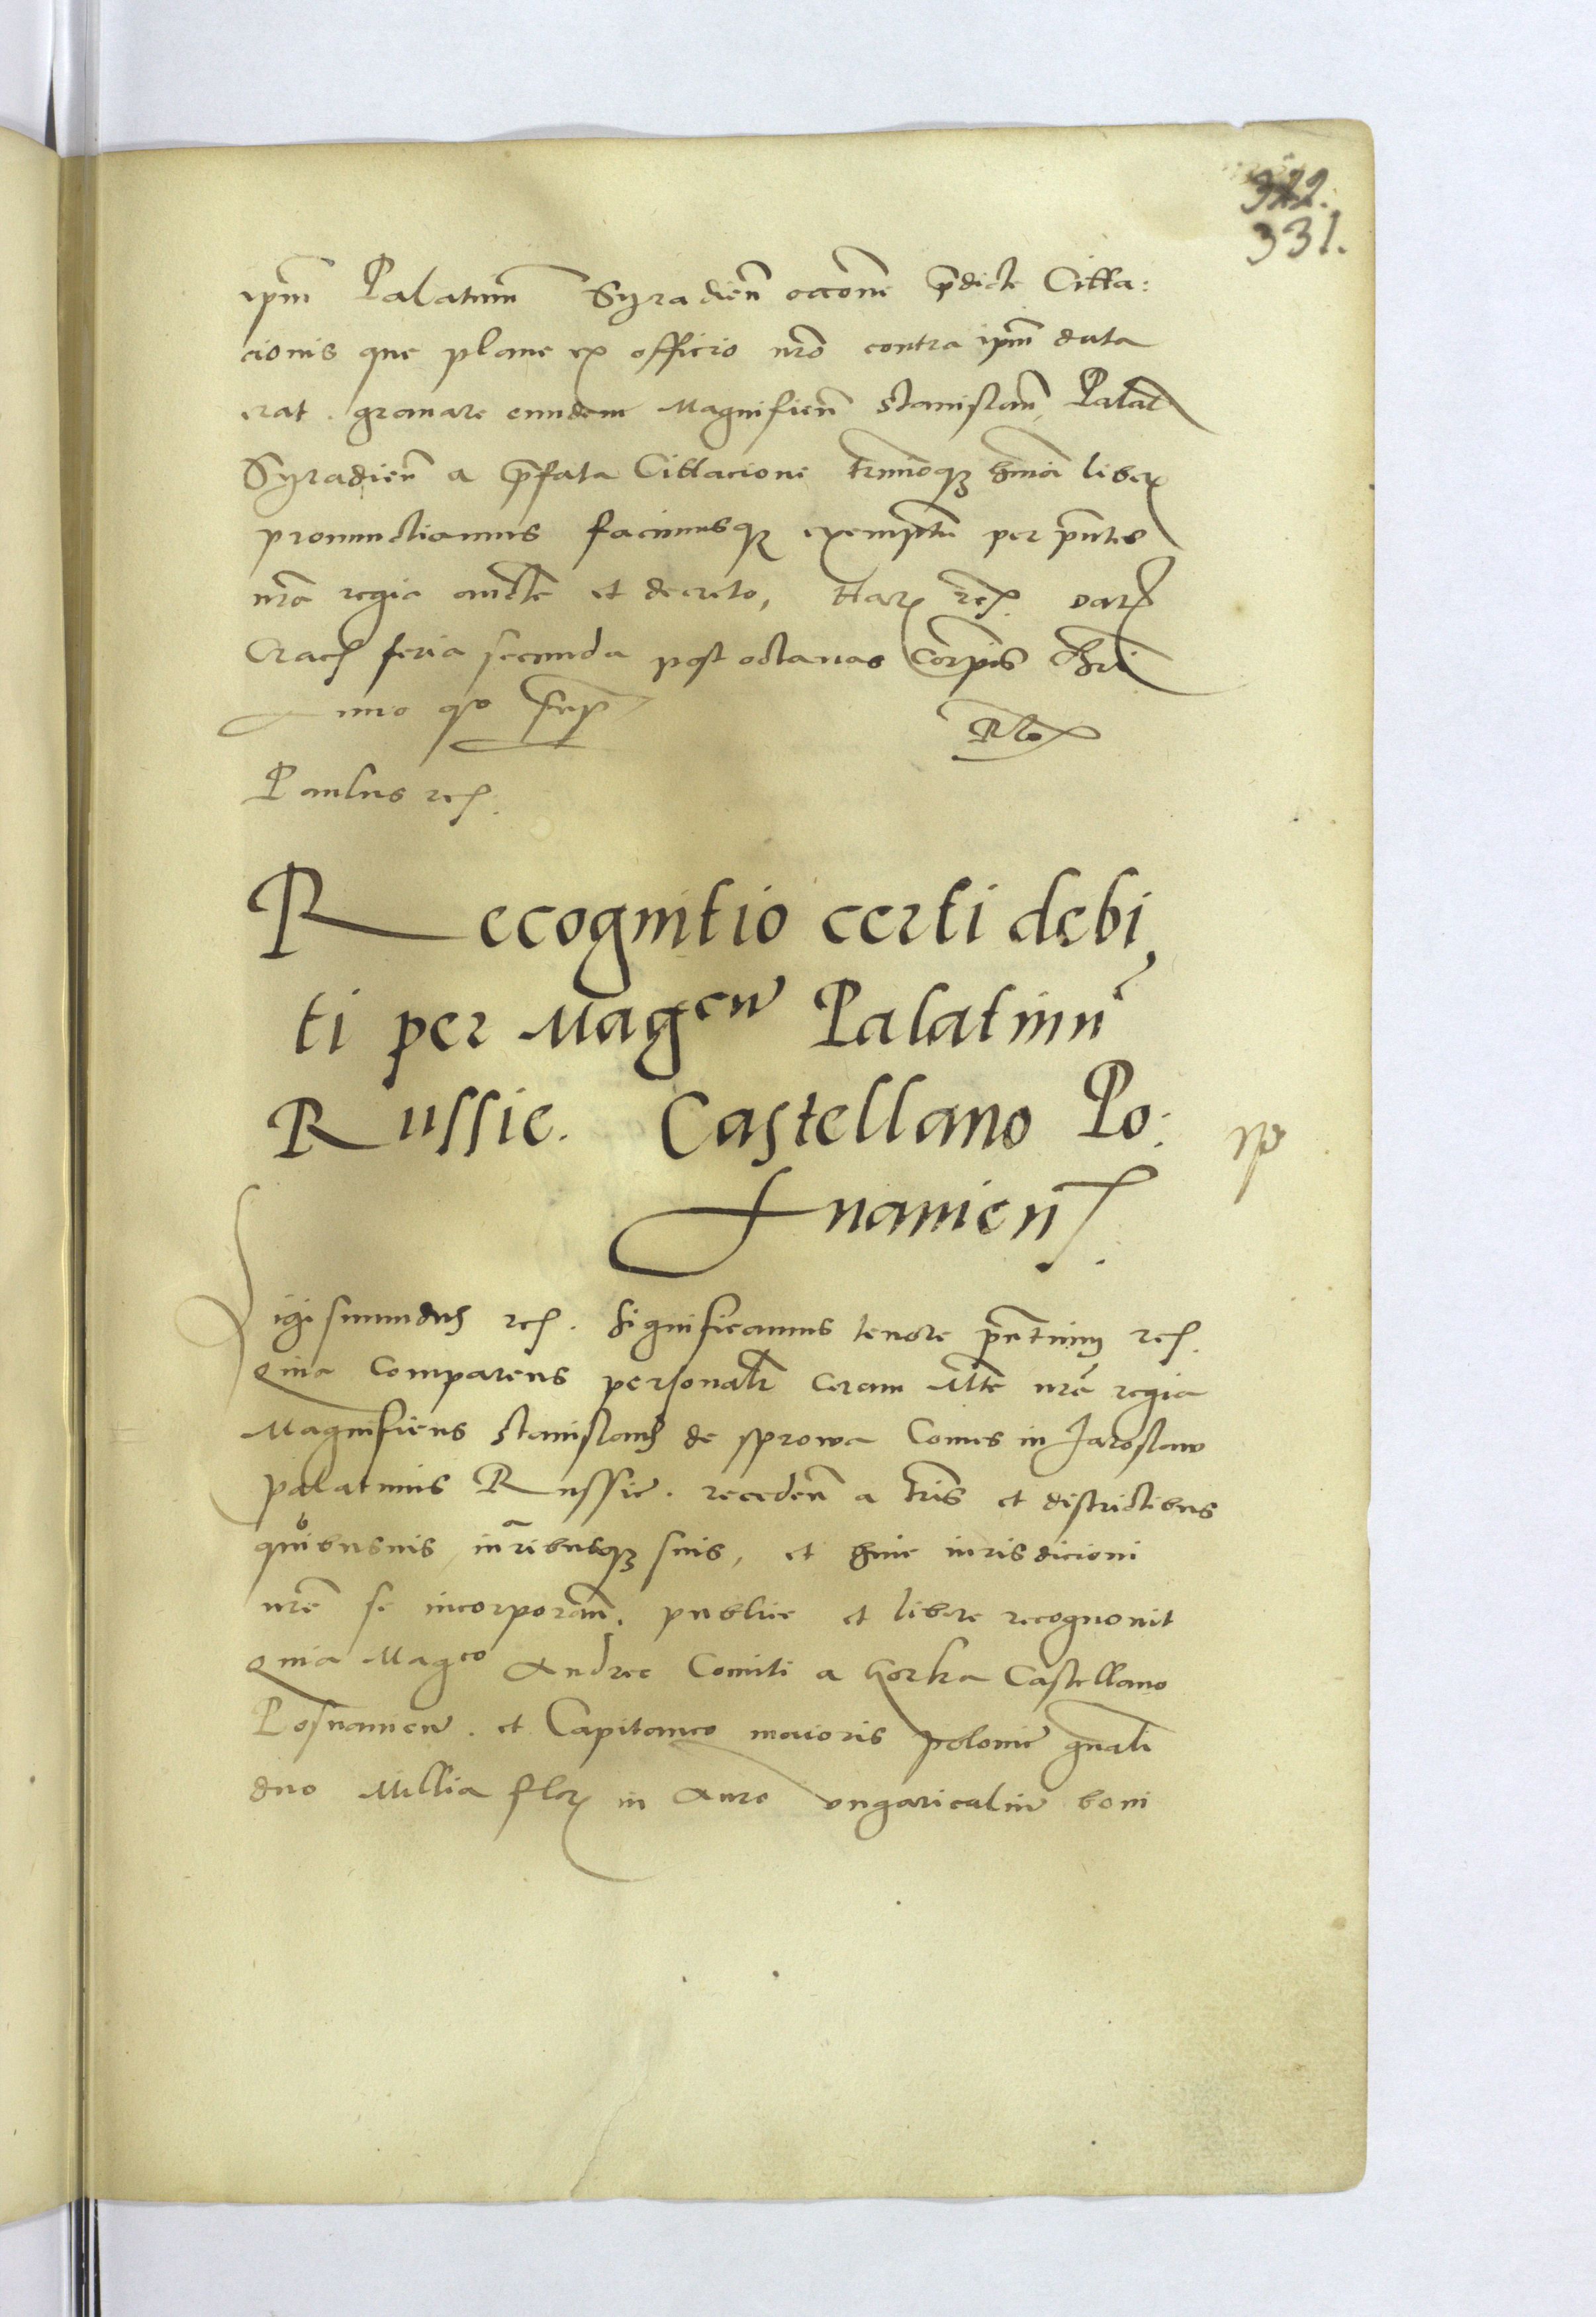 322.
331.
ipm̄ Palatinum Syradien̄ occone p̄dicte Citta:
cionis que plane ex officio nr̄o contra ipm̄ data
erat. gravare eundem Magnificū Stanislaū Palat̄
Syradien̄ a p̄fata Cittacione t̄minoqȝ hm̄oi liberū
pronunctiamus facimusqȝ exemptū per pn̄tes
nr̄a regia auct̄te et decreto, Harū rēß. Datß
Cracß feria secunda post octavas Corpīs Chr̄i
Anno qo sup̄
Rtox
Paulus ecß.
Recognitio certi debi
ti per Magcū Palatinū
Russie. Castellano Po:
snanienß.
Sigismundus ecß. Significamus tenore pn̄tium ecß.
Quia Comparens personalr̄ Coram Mte nr̄a regia
Magnificus Stanislaus de Sprowa Comes in Jaroslaw
palatinus Russie. recedeñ a t̄ris et districtibus
quibusvis iuribusqȝ suis, et huic iurisdicioni
nr̄e se incorporañ. publice et libere recognovit
Quia Magco Andree Comiti a Gorka Castellano
Posnanien. et Capitaneo maioris polonie gn̄ali
duo Millia flor̄ in Auro ungaricaliū boni